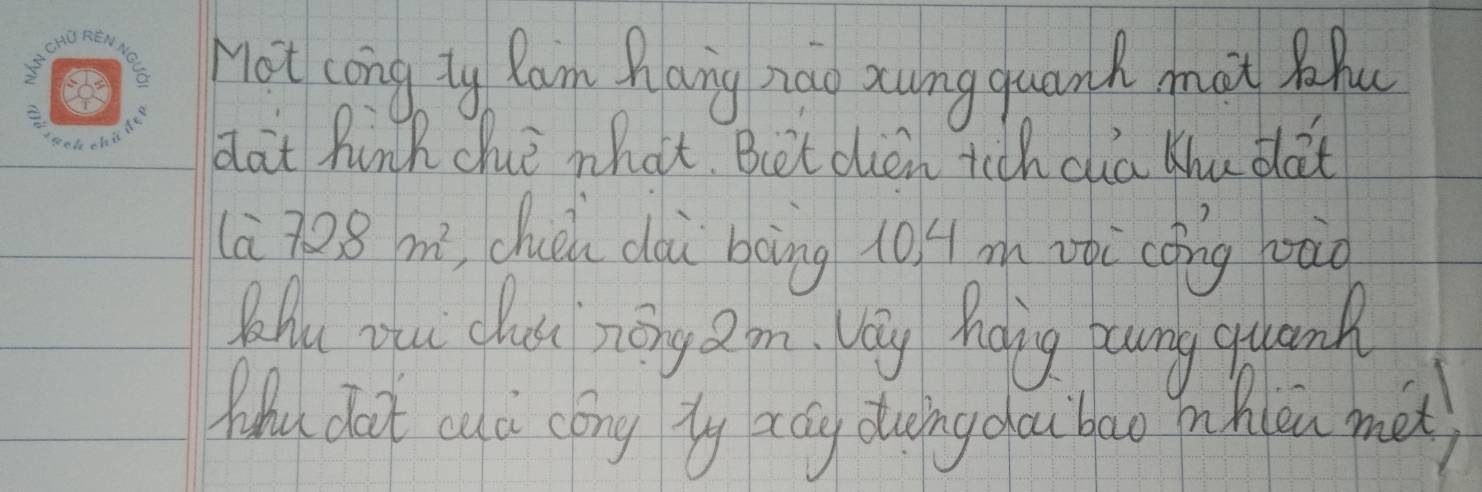 NẮN CHỮ RÈN NGƯỜI
Một công ty làm hàng rào xung quanh một khu
đất hình chữ nhật. Biết diện tích của khu đất
là 728 m², chiều dài bằng 10,4 m với cổng vào
khu vui chơi rộng 2m. Vậy hàng xung quanh
khu đất của công ty xây dựng dài bao nhiêu mét